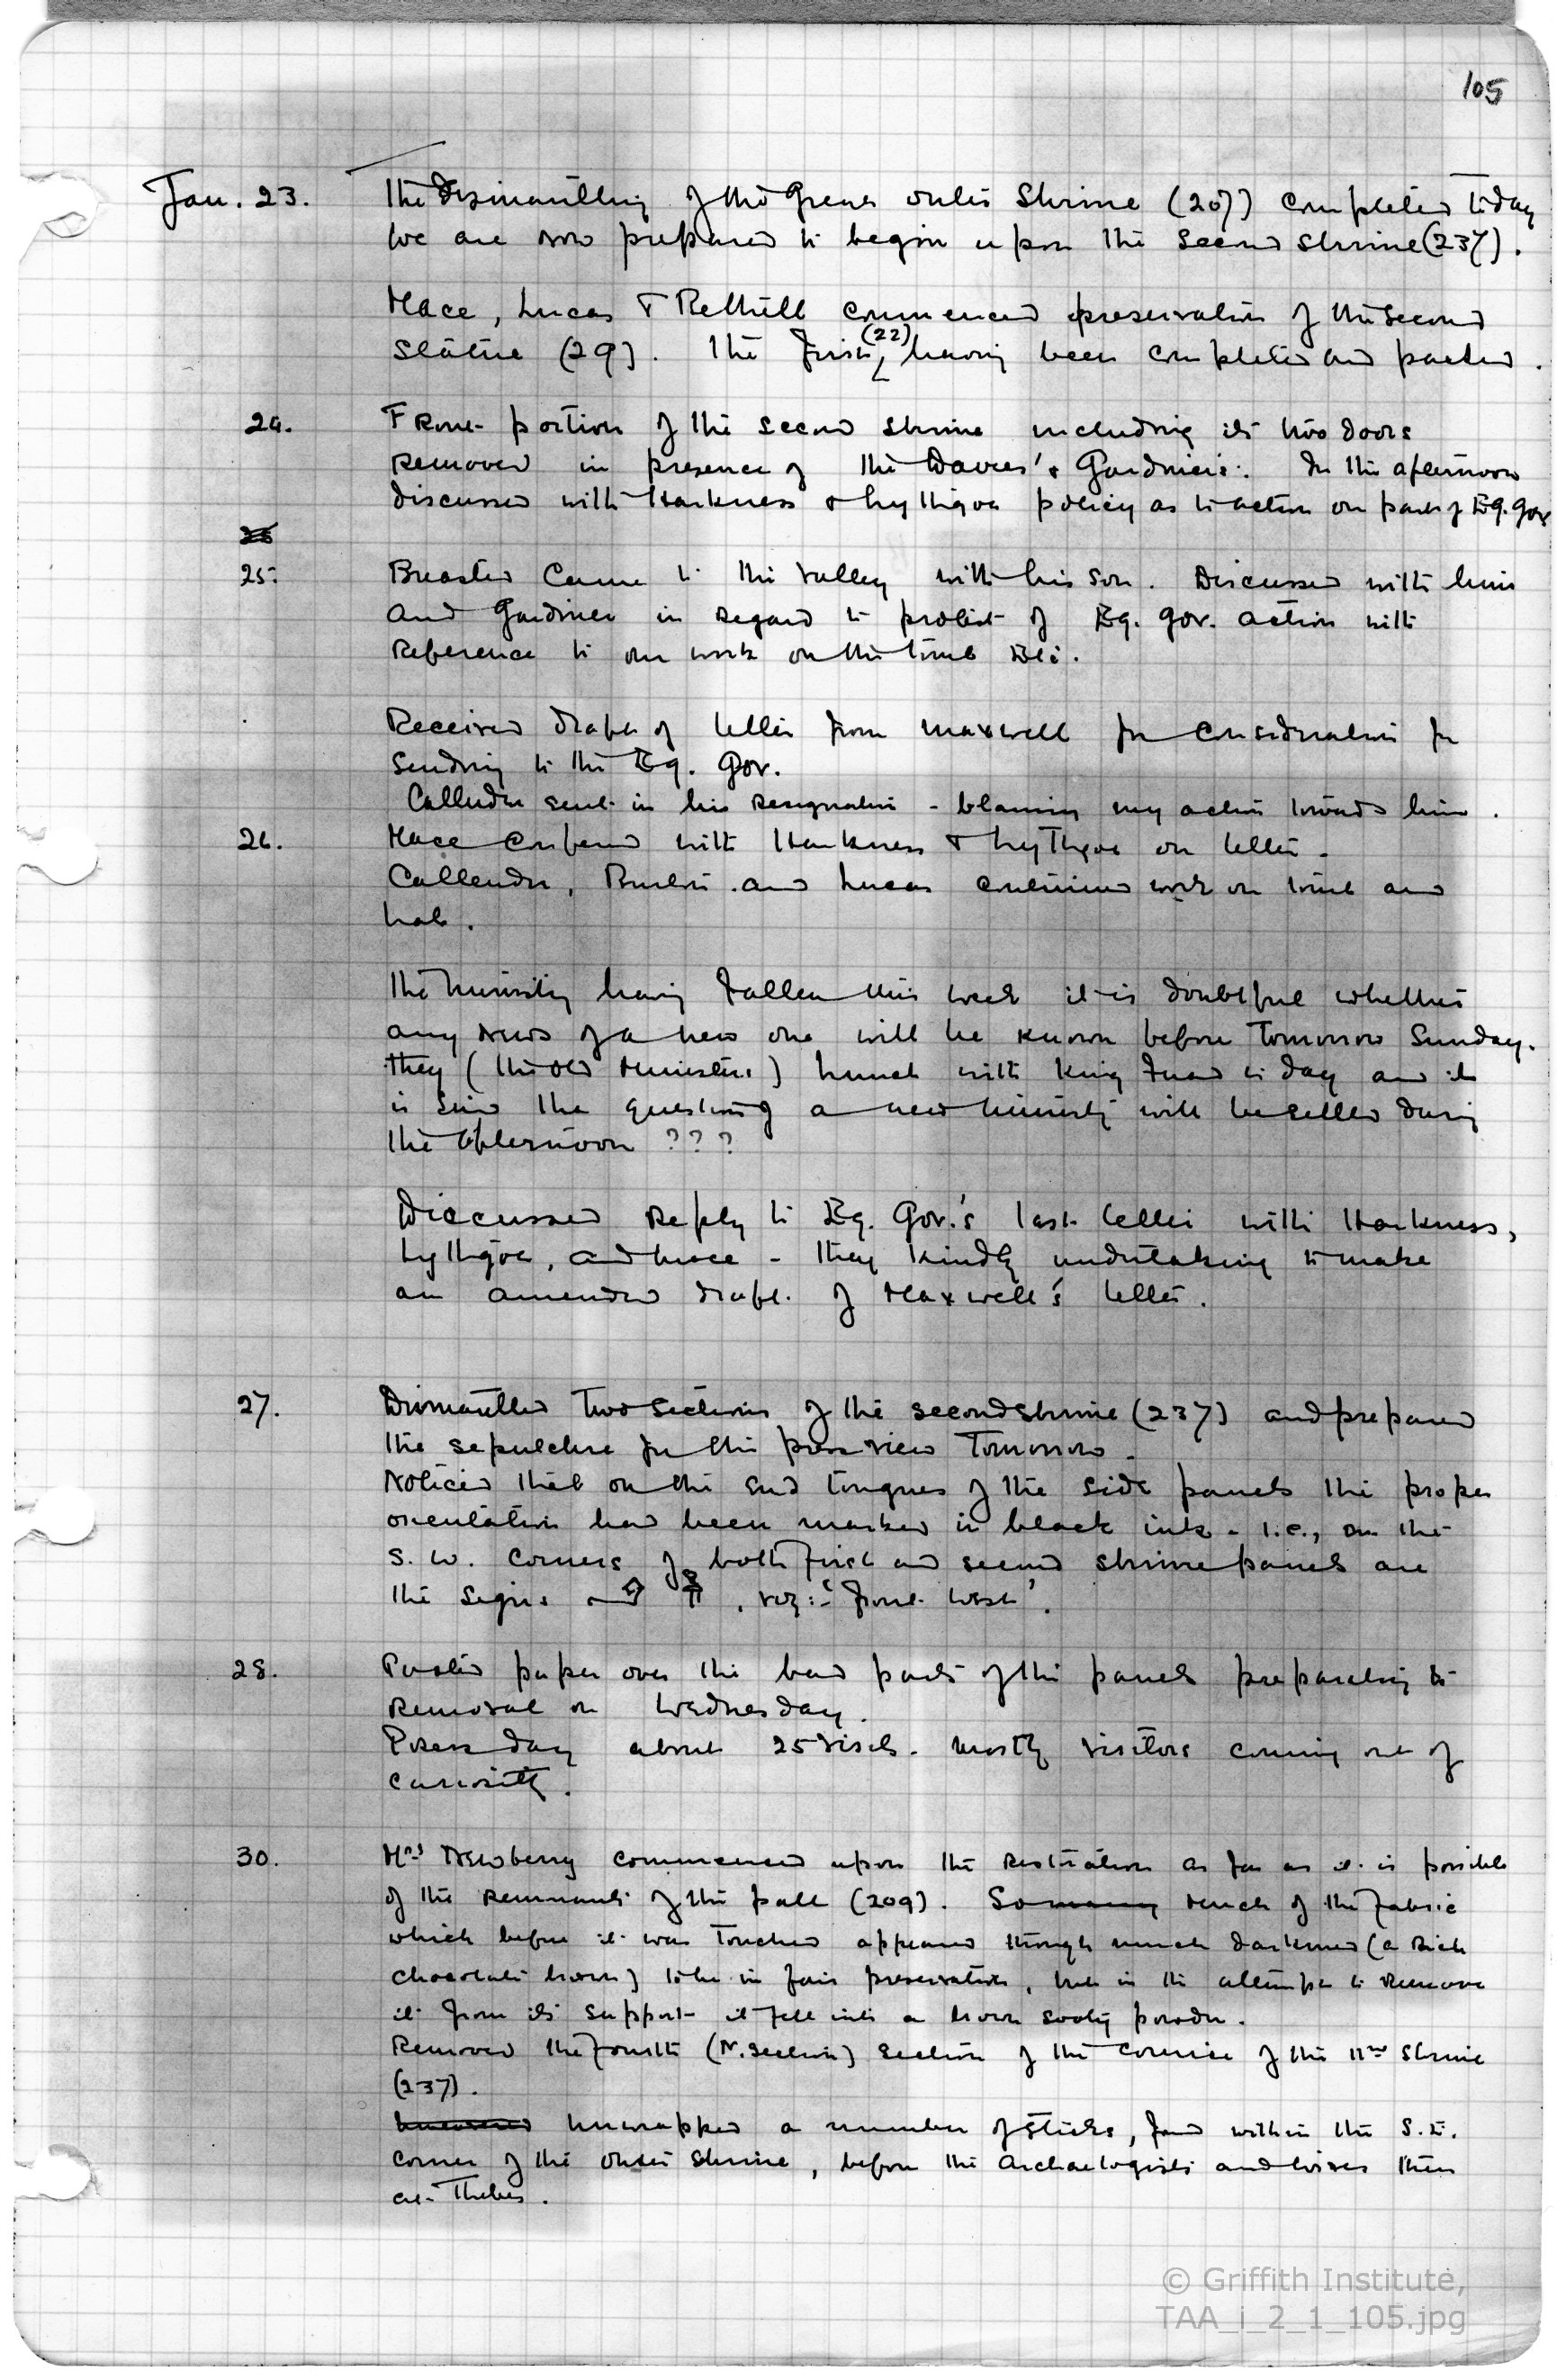 105
Jan. 23. The dismantling of the Great outer Shrine (207) completed today
We are now prepared to begin upon the second shrine (237).
Mace, Lucas & Bethell commenced preservation of the second
statue (29). The first (22) having been completed and packed.
24. Front portion of the second shrine including its two doors
removed in presence of the Davies' & Gardiners. In the afternoon
discussed with Harkness & Lythgoe policy as to action on part of Eg. Gov
25
25. Breasted came to the valley with his son. Discussed with him
and Gardiner in regard to protest of Eg. Gov. action with
reference to our work on the tomb etc.
Received draft of letter from Maxwell for consideration for
sending to the Eg. Gov.
Callender sent in his resignation - blaming my action towards him.
26. Mace conferred with Harkness & Lythgoe on letter.
Callender, Burton and Lucas continued work on tomb and
lab.
The ministry having fallen this week it is doubtful whether
any news of a new one will be known before tomorrow Sunday.
They (the old Ministers) lunch with King Fuad to day and it
is said the question of a new ministry will be settled during
the afternoon ???
Discussed reply to Eg. Gov.'s last letter with Harkness,
Lythgoe, and Mace - they kindly undertaking to make
an amended draft of Maxwell's letter.
27. Dismantled two sections of the second shrine (237) and prepared
the sepulchre for the press view tomorrow.
Noticed that on the end tongues of the side panels the proper
orientation had been marked in black ink - i.e., on the
S.W. corners of both first and second shrine panels are
the signs , viz:- 'front west'.
28. Pasted paper over the bad parts of the panels preparatory to
removal on Wednesday.
Press day about 25 visits. mostly visitors coming out of
curiosity.
30. Mrs Newberry commenced upon the restoration as far as it is possible
of the remnants of the pall (209). So many much of the fabric
which before it was touched appeared though much darkened (a rich
chocolate brown) to be in fair preservation, but in the attempt to remove
it from its support it fell into a brown sooty powder.
Removed the fourth (N. section) section of the cornice of the IInd Shrine
(237).
Unwrapped a number of sticks, found within the S.E.
corner of the outer shrine, before the Archaeologists and wives then
at Thebes.
© Griffith Institute,
TAA_i_2_1_105.jpg